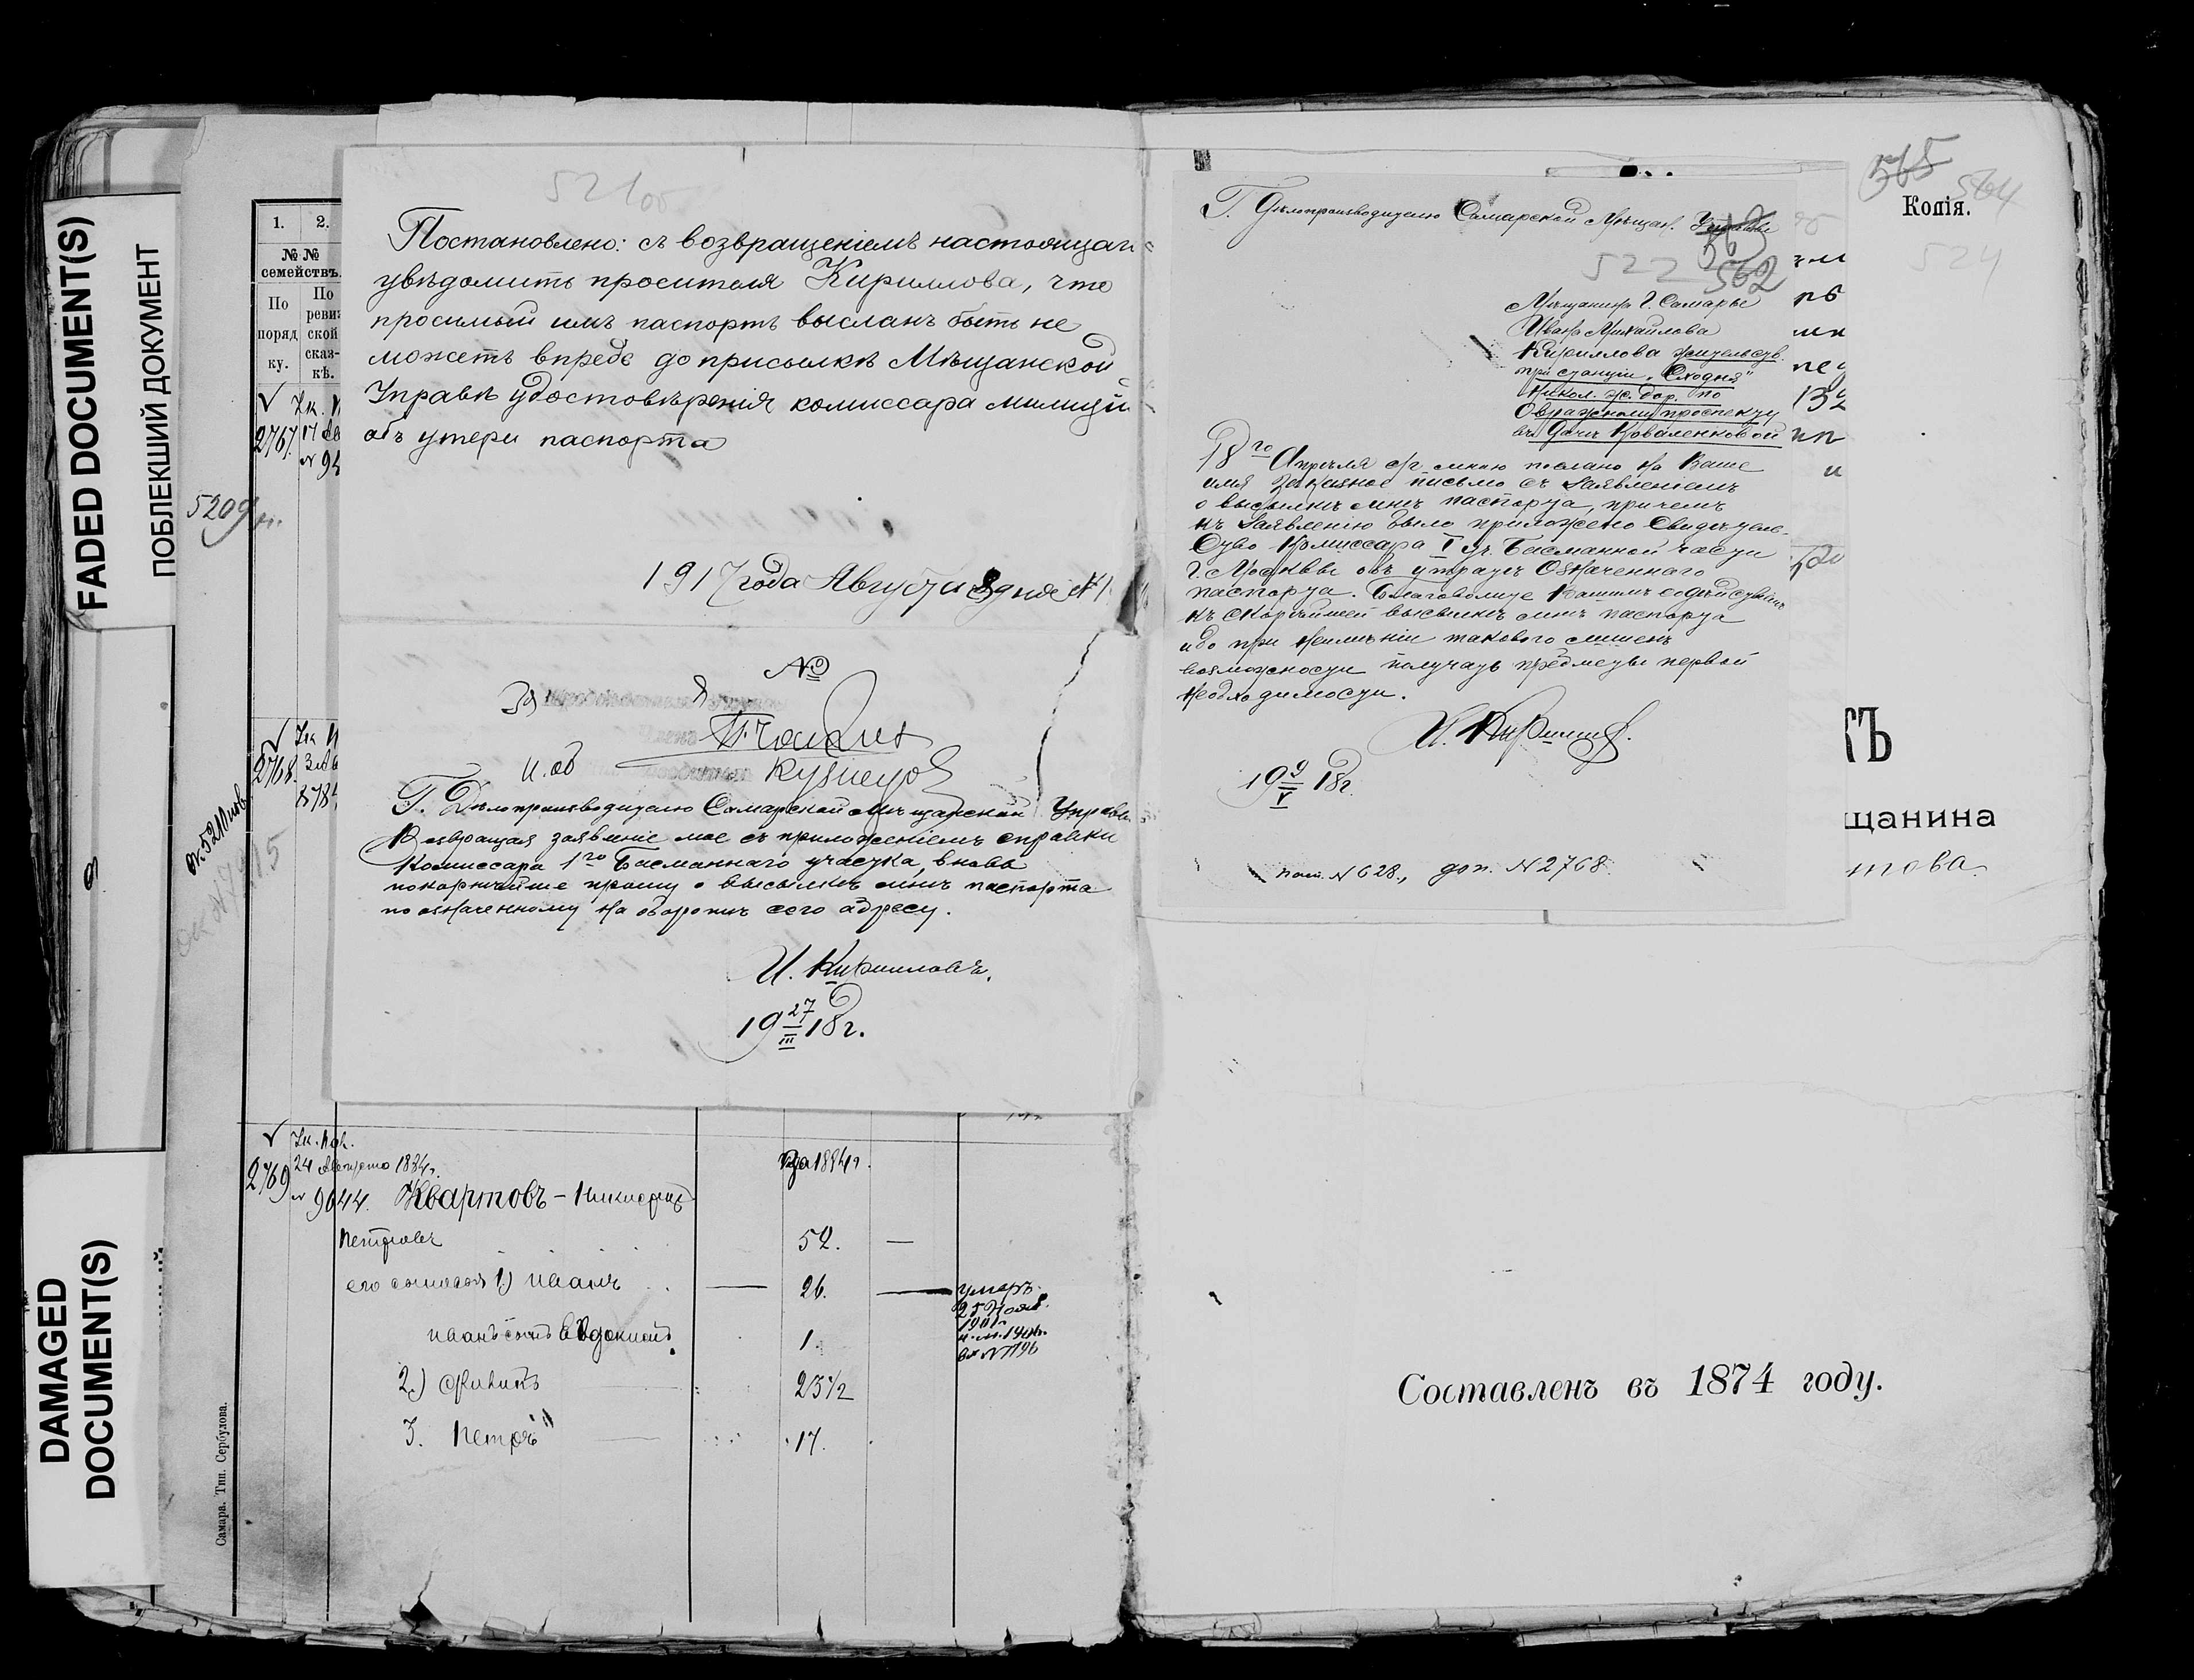 FADED DOCUMENT(S)
ПОБЛЕКШИЙ ДОКУМЕНТ
DAMAGED
DOCUMENT(S)
1. 2.
№ №
семействъ.
По
поряд
ку.
По
ревиз
ской
сказ-
кѣ.
2767.
5209
2768.
Самара. Тип. Сербулова.
521об
Постановлено: съ возвращеніемъ настоящаго
увѣдомить просителя Кириллова, что
просимый имъ паспортъ высланъ быть не
можетъ впредь до присылкѣ Мѣщанской
Управѣ удостовѣренія комиссара милиціи
объ утери паспорта
1917 года Августа 8 дня №
№
За
и. об
Кузнецов
Г. Дѣлопроизводителю Самарской Мѣщанской Управы
Возвращая заявленіе мое съ приложеніемъ справки
Комиссара 1го Басманнаго участка, вновь
покорнѣйше прошу о высылкѣ мнѣ паспорта
по означенному на оборотѣ сего адресу.
И. Кирилловъ.
19 27/III 18 г.
2769
24 Августа 1884 г.
№ 9644. Квартовъ - Никифоръ
Петровъ 52. —
его сыновья 1) Иванъ — 26. — умеръ
25 Нояб.
Ивана сынъ Евдокимъ 1.
2.) Филипъ 23 1/2
3. Петръ 17.
565 564
Копія.
524
Г. Дѣлопроизводителю Самарской Мѣщан. Управы
563
522 562
Мѣщанина г. Самары
Ивана Михайлова
Кириллова жительств.
при станціи "Сходня"
Никол. ж. дор. по
Овражному проспекту
въ дачѣ Коваленковой
18го Апрѣля с/г мною послано на Ваше
имя заказное письмо съ заявленіемъ
о высылкѣ мнѣ паспорта, причемъ
къ заявленію было приложено свидѣтель-
ство Комиссара I уч. Басманной части
г. Москвы объ утратѣ означеннаго
паспорта. Благоволите Вашимъ содѣйствіемъ
къ скорѣйшей высылкѣ мнѣ паспорта
ибо при неимѣніи такового лишенъ
возможности получать предметы первой
необходимости.
И. Кириллов.
19 9/V 18 г.
пост. № 628., доп. № 2768.
ТЪ
щанина
това.
Составленъ въ 1874 году.